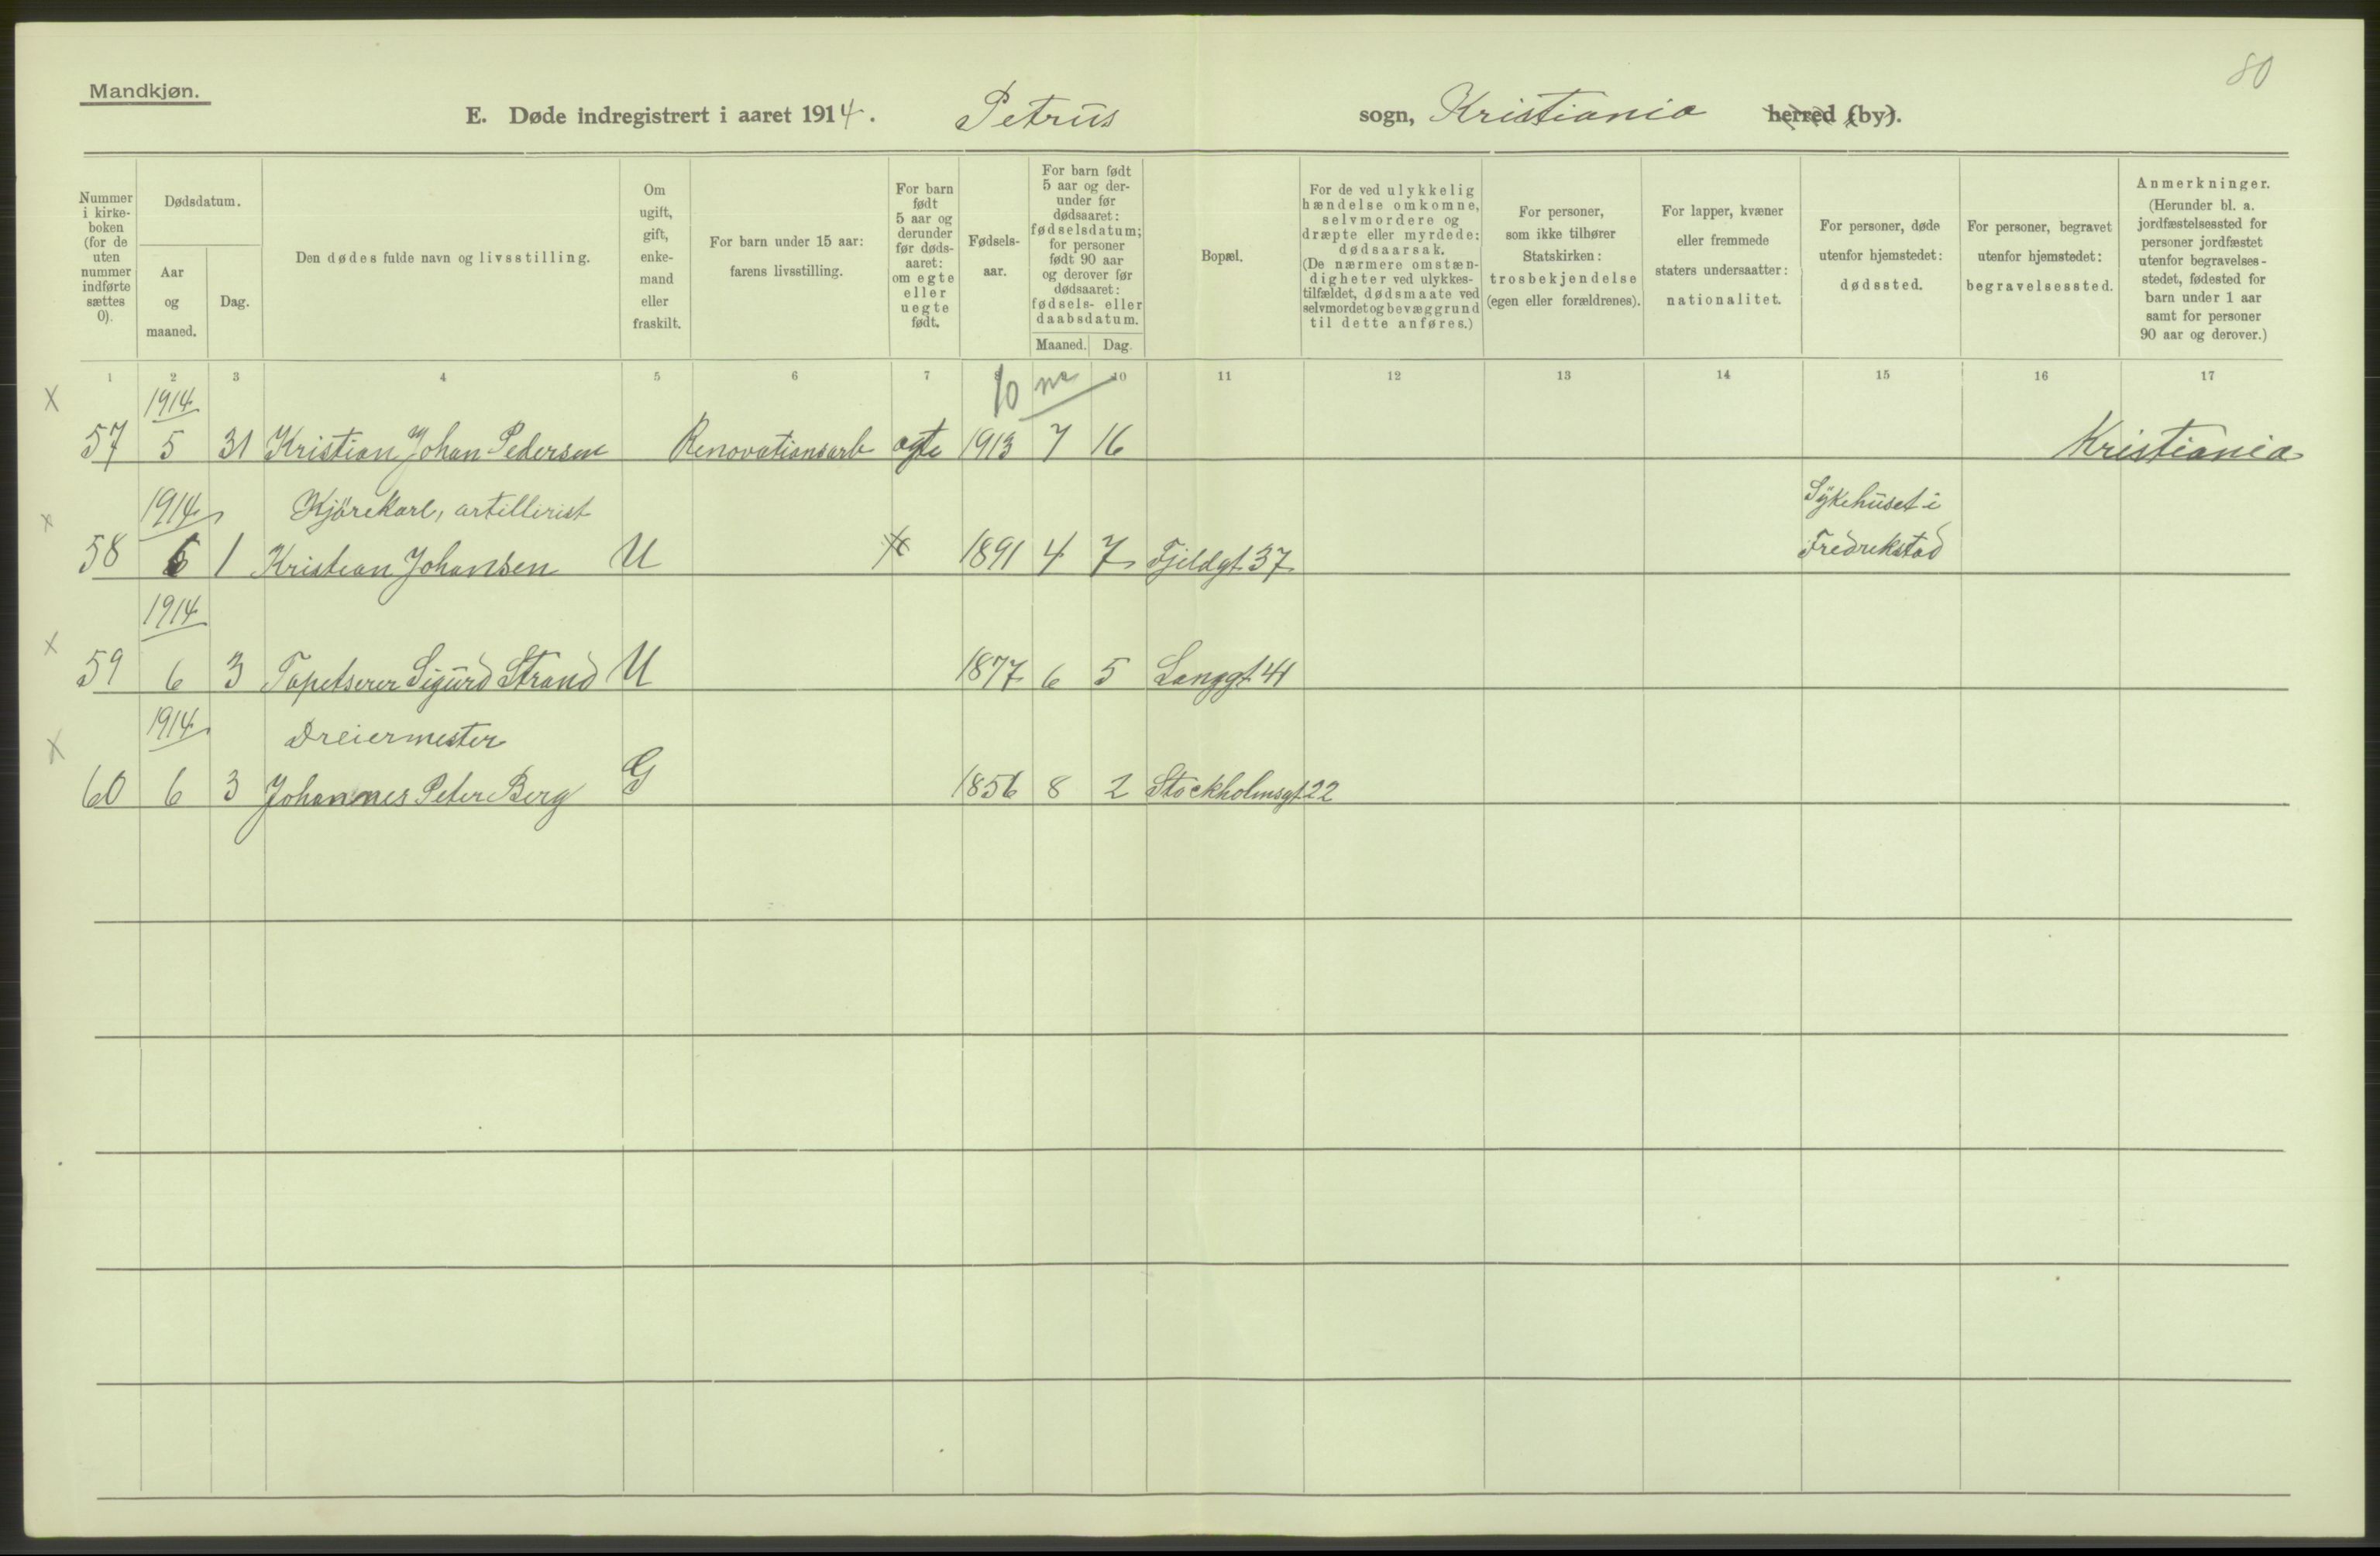 80
Mandkjøn.
E. Døde indregistrert i aaret 1914. Petrus sogn, Kristiania herred (by).
Nummer i kirke- boken (for de uten nummer indførte sættes 0).
Dødsdatum.
Aar og maaned.
Dag.
Den dødes fulde navn og livsstilling.
Om ugift, gift, enke- mand eller fraskilt.
For barn under 15 aar: farens livsstilling.
For barn født 5 aar og derunder før døds- aaret: om egte eller uegte født.
Fødsels- aar.
For barn født 5 aar og der- under før dødsaaret: fødselsdatum; for personer født 90 aar og derover før dødsaaret: fødsels- eller daabsdatum.
Maaned. Dag.
Bopæl.
For de ved ulykkelig hændelse omkomne, selvmordere og dræpte eller myrdede: dødsaarsak. (De nærmere omstæn- digheter ved ulykkes- tilfældet, dødsmaate ved selvmordet og bevæggrund til dette anføres.)
For personer, som ikke tilhører Statskirken: trosbekjendelse (egen eller forældrenes).
For lapper, kvæner eller fremmede staters undersaatter: nationalitet.
For personer, døde utenfor hjemstedet: dødssted.
For personer, begravet utenfor hjemstedet: begravelsessted.
Anmerkninger. (Herunder bl. a. jordfæstelsessted for personer jordfæstet utenfor begravelses- stedet, fødested for barn under 1 aar samt for personer 90 aar og derover.)
1 2 3 4 5 6 7 8 9 10 11 12 13 14 15 16 17
x 1914 10 m
57 5 31 Kristian Johan Pedersen Renovationsarb egte 1913 7 16 Kristiania
x 1914 Kjørekarl, artillerist Sykehuset i
58 6 1 Kristian Johansen U 1891 4 7 Fjeldgt 37 Fredrikstad
1914
x 59 6 3 Tapetserer Sigurd Strand U 1877 6 5 Langgt 41
x 1914 Dreiermester
60 6 3 Johannes Peter Berg G 1856 8 2 Stockholmsgt 22